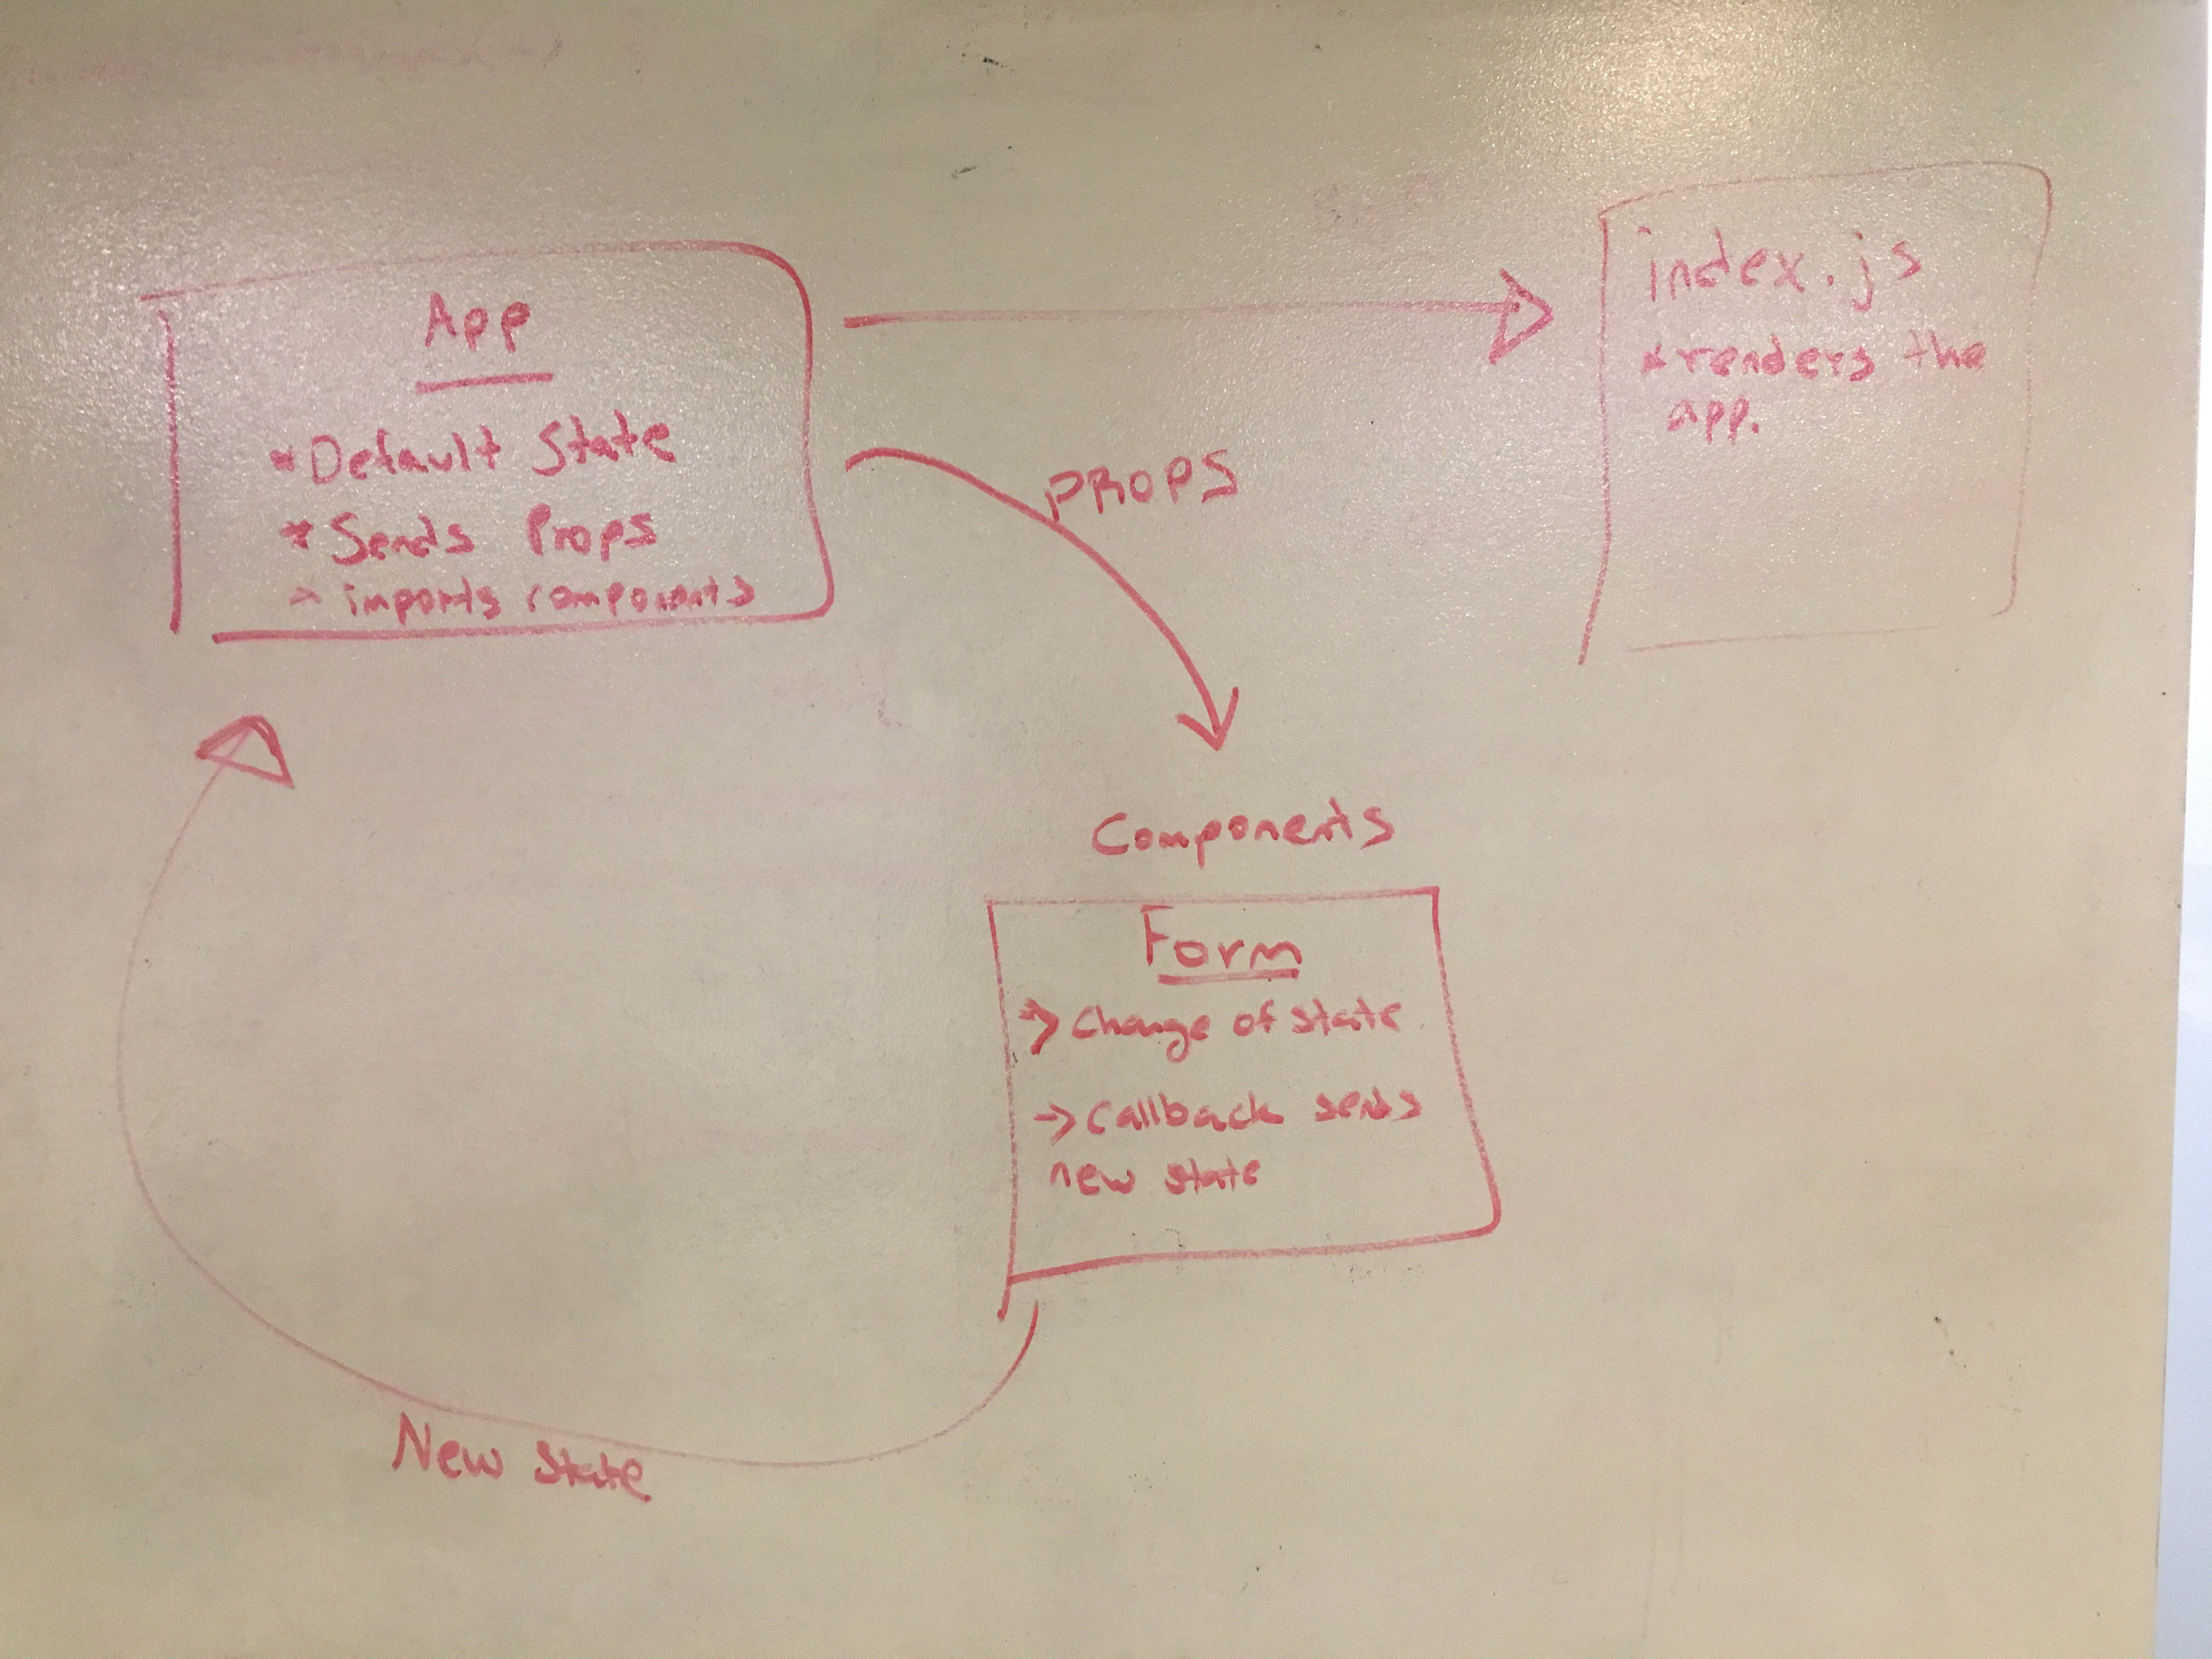 App
* Default State
* Sends Props
* imports components
index.js
* renders the
app.
PROPS
Components
Form
-> Change of state
-> Callback sends
new state
New state